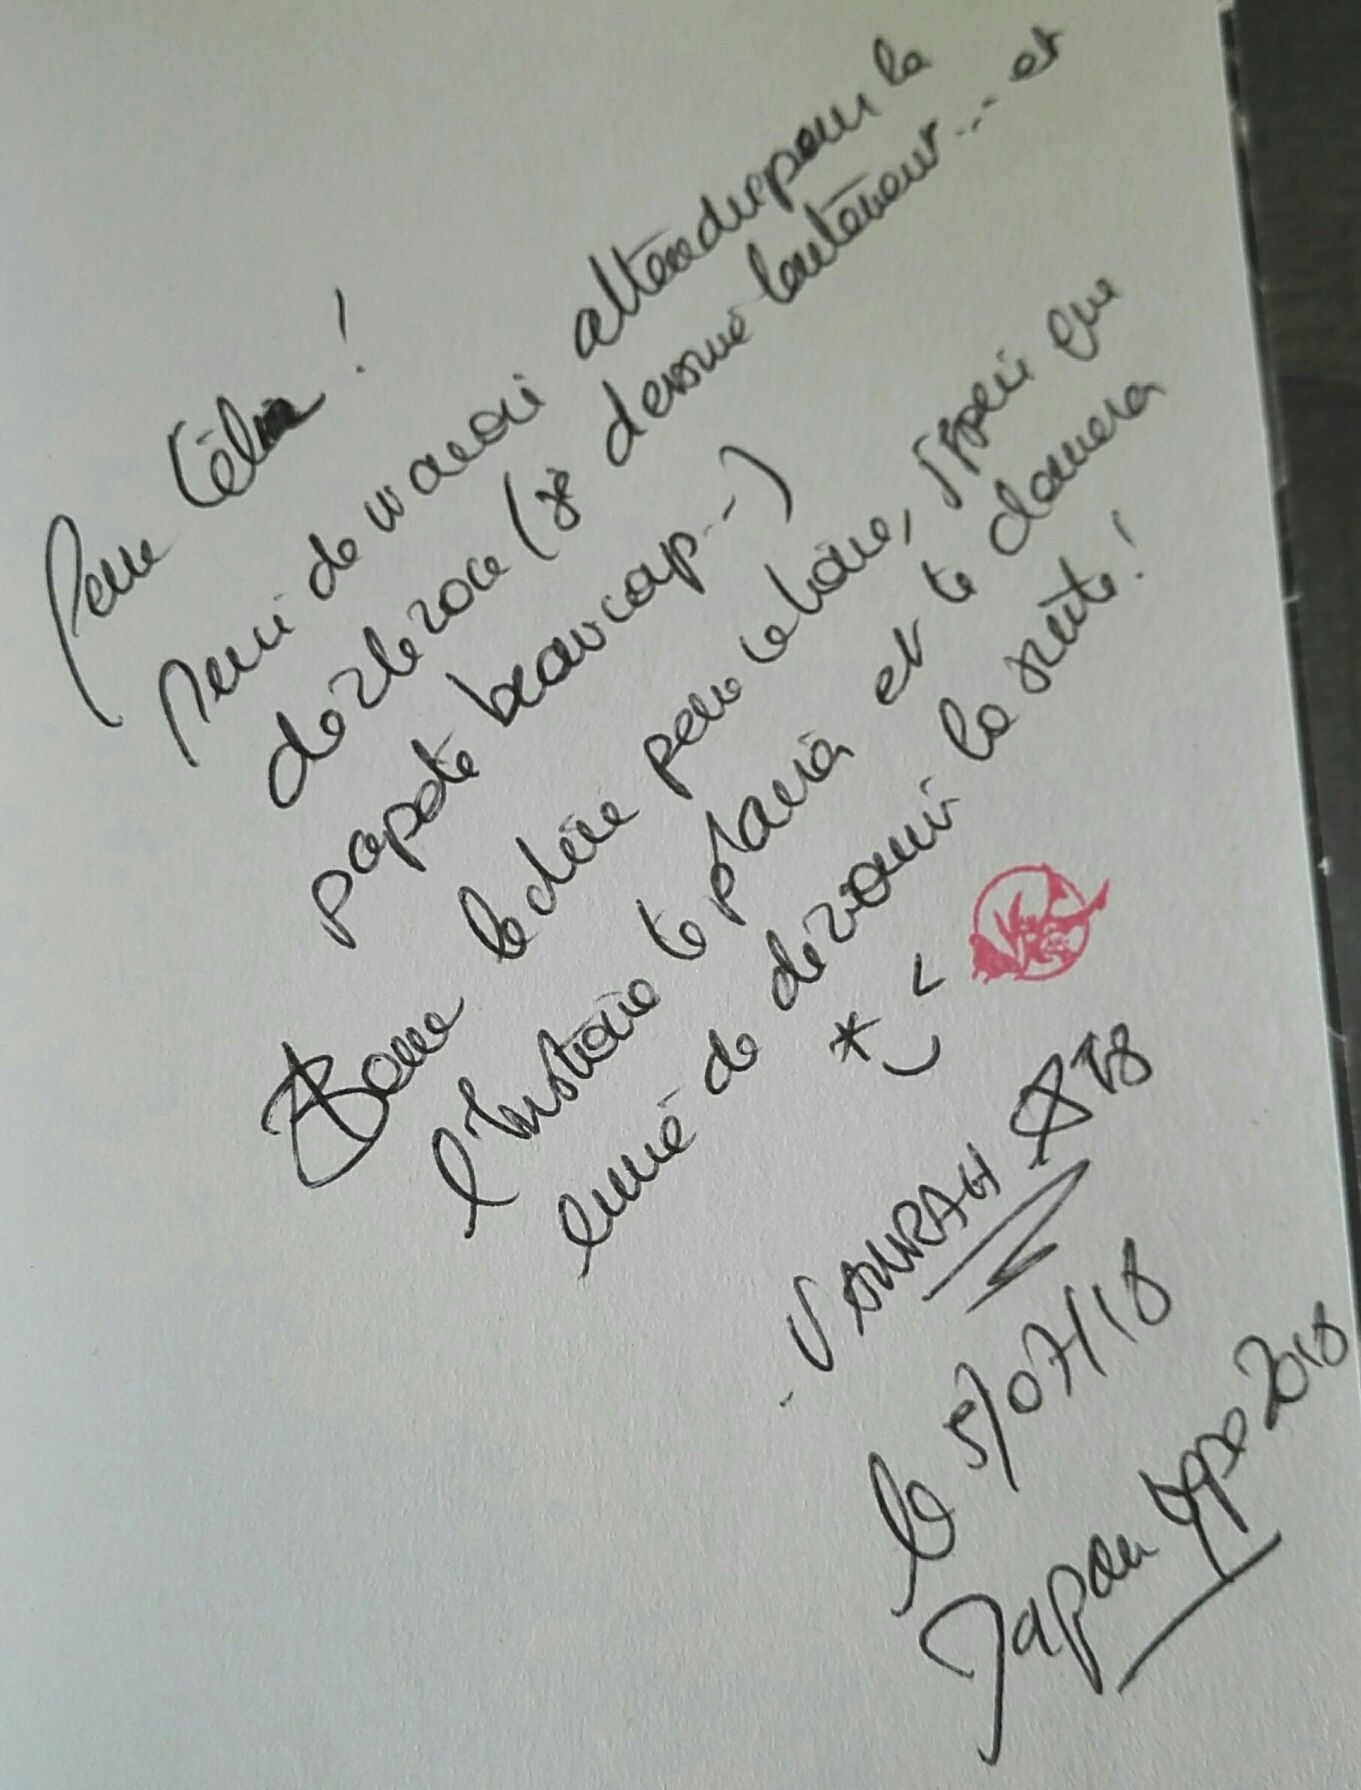 Pour Célia !
Merci de m'avoir attendu pour la
dédicace (je dessine lentement... et
papote beaucoup...)
Bonne lecture pour ce tome, j'espère que
l'histoire te plaira et te donnera
envie de découvrir la suite !
le 5/07/18
Japan Expo 2018